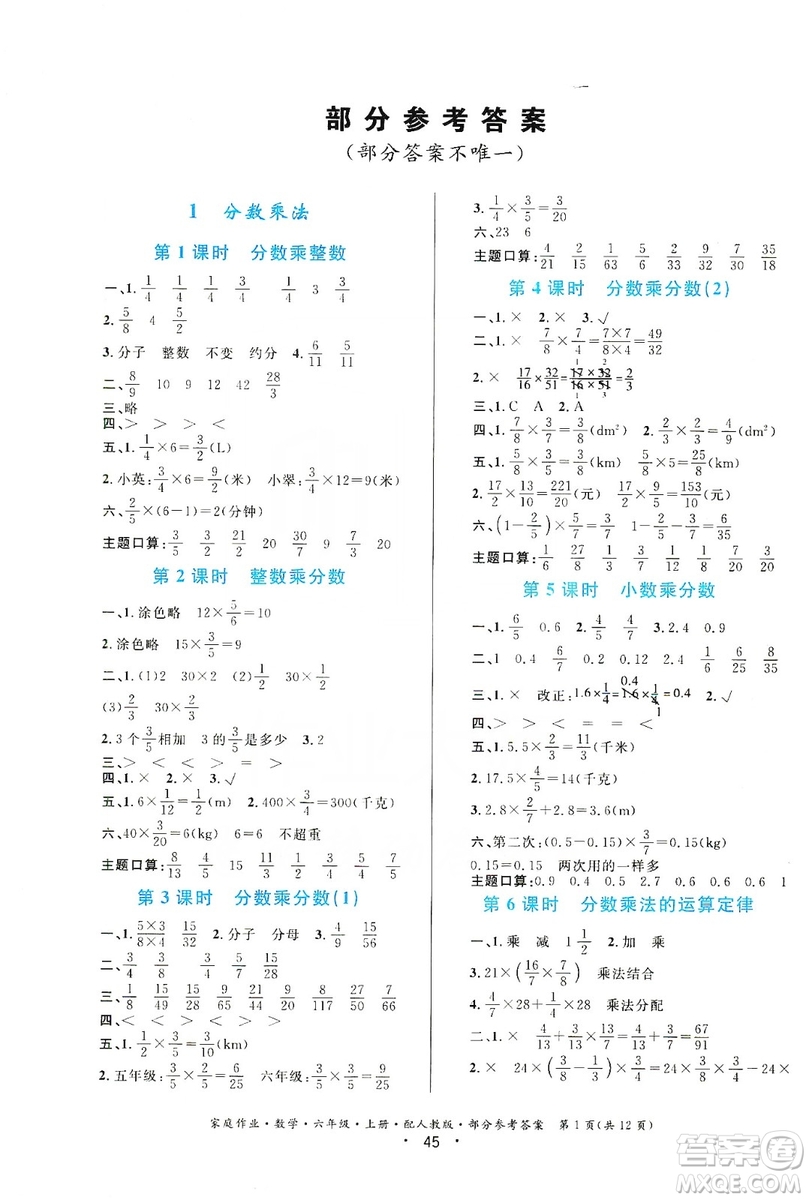 部分参考答案
(部分答案不唯一)
1 分数乘法
第1课时 分数乘整数
一、1. 1/4 1/4 1/4 3/4 1/4 3 3/4
2. 5/8 4 5/2
3. 分子 整数 不变 约分 4. 6/11 5/11
二、8/9 10 9 12 28/3
三、略
四、> > > <
五、1. 1/4×6=3/2(L)
2. 小英:3/4×6=9/2(米) 小翠:3/4×12=9(米)
六、2/5×(6-1)=2(分钟)
主题口算:3/5 3/2 21/2 20 30/7 9 3/4 20
第2课时 整数乘分数
一、1. 涂色略 12×5/6=10
2. 涂色略 15×3/5=9
二、1. (1)2 30×2 (2)1/2 30×1/2
(3)2/3 30×2/3
2. 3个3/5相加 3的3/5是多少 3. 2
三、> < > < > <
四、1. × 2. × 3. √
五、1. 6×1/12=1/2(m) 2. 400×3/4=300(千克)
六、40×3/20=6(kg) 6=6 不超重
主题口算:8/13 4/15 15 3/4 4 3/5 4/7 2/5
第3课时 分数乘分数(1)
一、1. 5×3/8×4 15/32 2. 分子 分母 3/10 3/8
二、3/4 3/4 2/9 4/9
三、1/8 15/32 15/56 9/110 28/81 15/118 35/88 9/77
四、< < < < > <
五、1. 1/2×3/5=3/10(m)
2. 五年级:2/5×3/5=6/25 六年级:3/5×2/5=6/25
3. 1/4×3/5=3/20
六、23 6
主题口算:4/21 2/15 8/63 1/6 9/32 8/15 7/20 35/18
第4课时 分数乘分数(2)
一、1. × 2. × 3. √
二、1. × 7/8×7/4=7×7/8×4=49/32
2. × 17/16×32/51=17×32/16×51=2/3
三、1. C A 2. A
四、1. 7/8×3/7=3/8(dm²) 2. 2/3×2/3=4/9(dm²)
五、1. 5/8×3/5=3/8(km)
2. 17/2×13/5=221/10(元) 17/2×9/5=153/10(元)
六、(1-2/7)×5/7=25/49
主题口算:1/6 27/8 1/3 1/6 8/25 1/2 5/6 4
第5课时 小数乘分数
一、1. 6/5 0.6 2. 4/5 4/7 3. 0.2 0.9
二、1 0.4 1/2 6/25 8/35 12/25
三、1. × 改正:1.6×1/4=1.6×1/4=0.4 2. √
四、> < = < > <
五、1. 5.5×2/11=1(千米)
2. 17.5×4/5=14(千克)
3. 2.8×2/7+2.8=3.6(m)
六、第二次:(0.5-0.15)×3/7=0.15(kg)
0.15=0.15 两次用的一样多
主题口算:0.9 0.4 0.3 0.2 0.6 0.6 1
第6课时 分数乘法的运算定律
一、1. 乘 减 1 1/2 2. 加 乘
3. 21×(16/7×7/12) 乘法结合
4. 4/7×28+1/4×28 乘法分配
二、1. × 4/13+3/13×10/7=4/13+3/7=67/91
家庭作业·数学·六年级·上册·配人教版·部分参考答案 第1页(共12页)
·45·
MXQE.COM